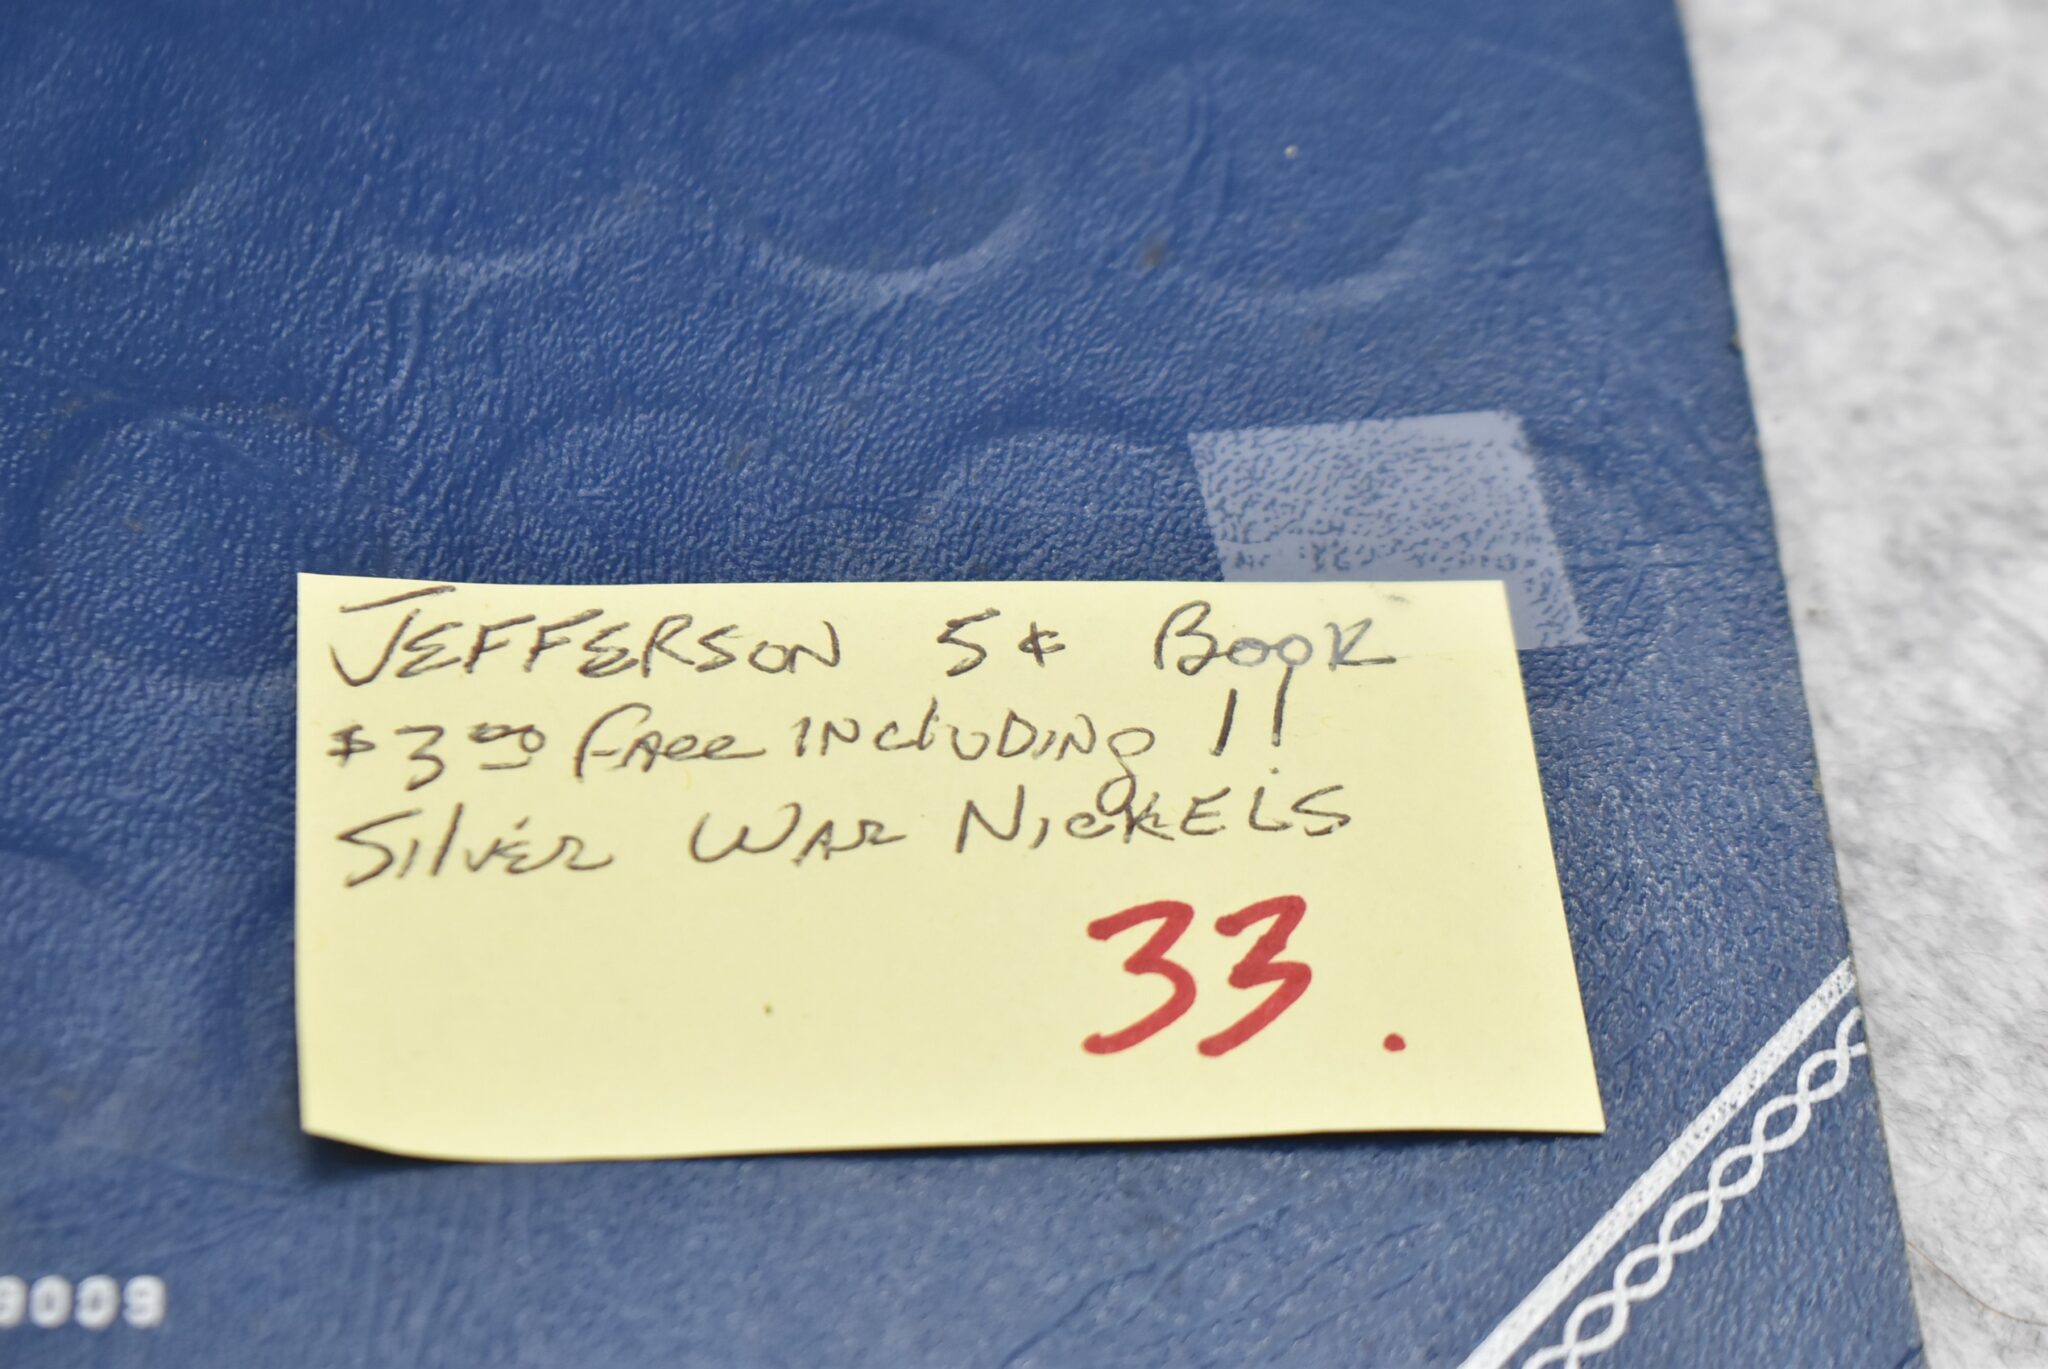 JEFFERSON 5¢ BOOK
$3.00 FACE INCLUDING 11
SILVER WAR NICKELS
33.
9009